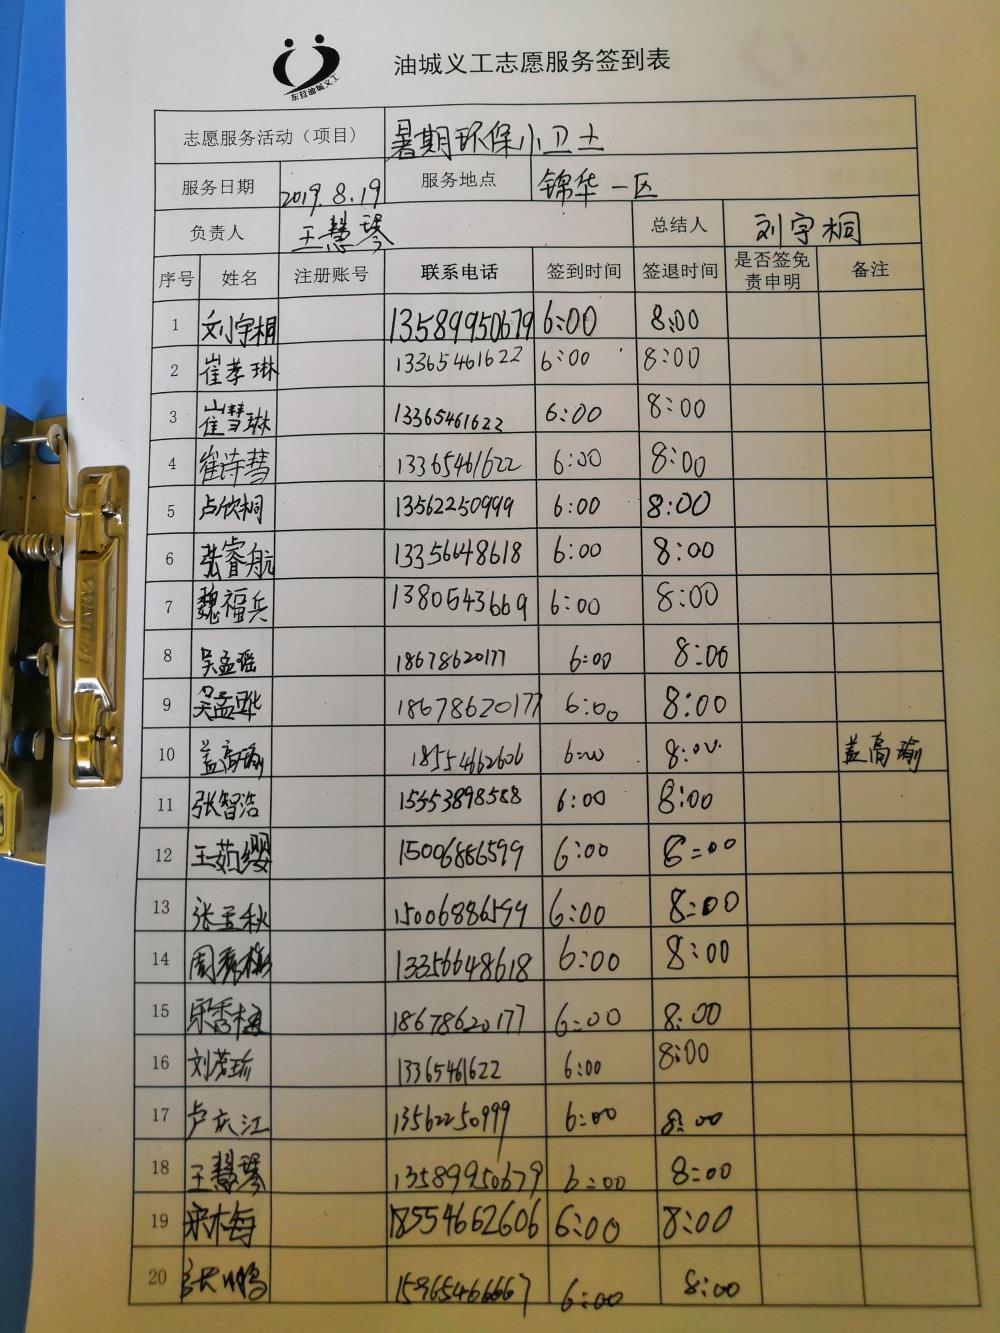 油城义工志愿服务签到表
东营油城义工
志愿服务活动（项目） 暑期环保小卫士
服务日期 2019.8.19 服务地点 锦华一区
负责人 王慧琴 总结人 刘宇桐
序号 姓名 注册账号 联系电话 签到时间 签退时间 是否签免责申明 备注
1 刘宇桐 13589950679 6:00 8:00
2 崔孝琳 13365461622 6:00 8:00
3 崔慧琳 13365461622 6:00 8:00
4 崔诗彗 13365461622 6:00 8:00
5 卢欣桐 13562250999 6:00 8:00
6 张睿航 13356648618 6:00 8:00
7 魏福兵 1380543669 6:00 8:00
8 吴孟瑶 18678620177 6:00 8:00
9 吴孟晔 18678620177 6:00 8:00
10 盖高瑜 18554662606 6:00 8:00 盖高瑜
11 张智浩 15353898588 6:00 8:00
12 王茹缨 15006886599 6:00 8:00
13 张孟秋 15006886599 6:00 8:00
14 13356648618 6:00 8:00
15 宋秀梅 18678620177 6:00 8:00
16 13365461622 6:00 8:00
17 卢庆江 13562250999 6:00 8:00
18 王慧琴 13589950679 6:00 8:00
19 宋木每 18554662606 6:00 8:00
20 15965466667 6:00 8:00